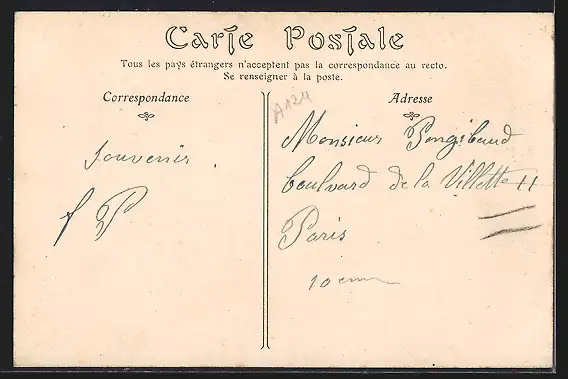 Carte Postale
Tous les pays étrangers n'acceptent pas la correspondance au recto.
Se renseigner à la poste.
Correspondance
Adresse
A124
Souvenir
f P
Monsieur Pongibaud
boulvard de la Villette 11
Paris
10 eme